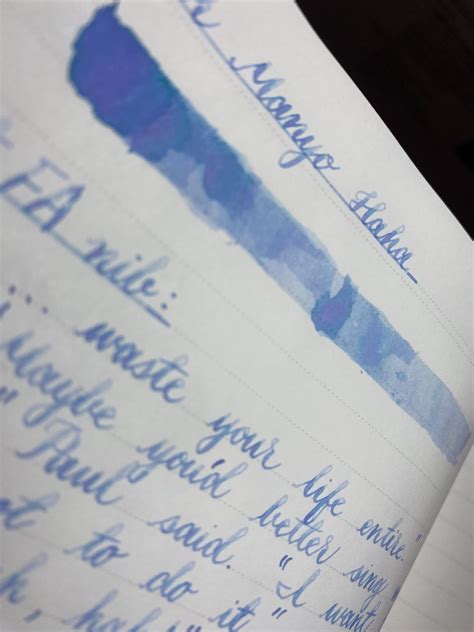 Manyo Haha
FA nib:
... waste your life entire."
Maybe you'd better sing
" Paul said. "I want
to do it"